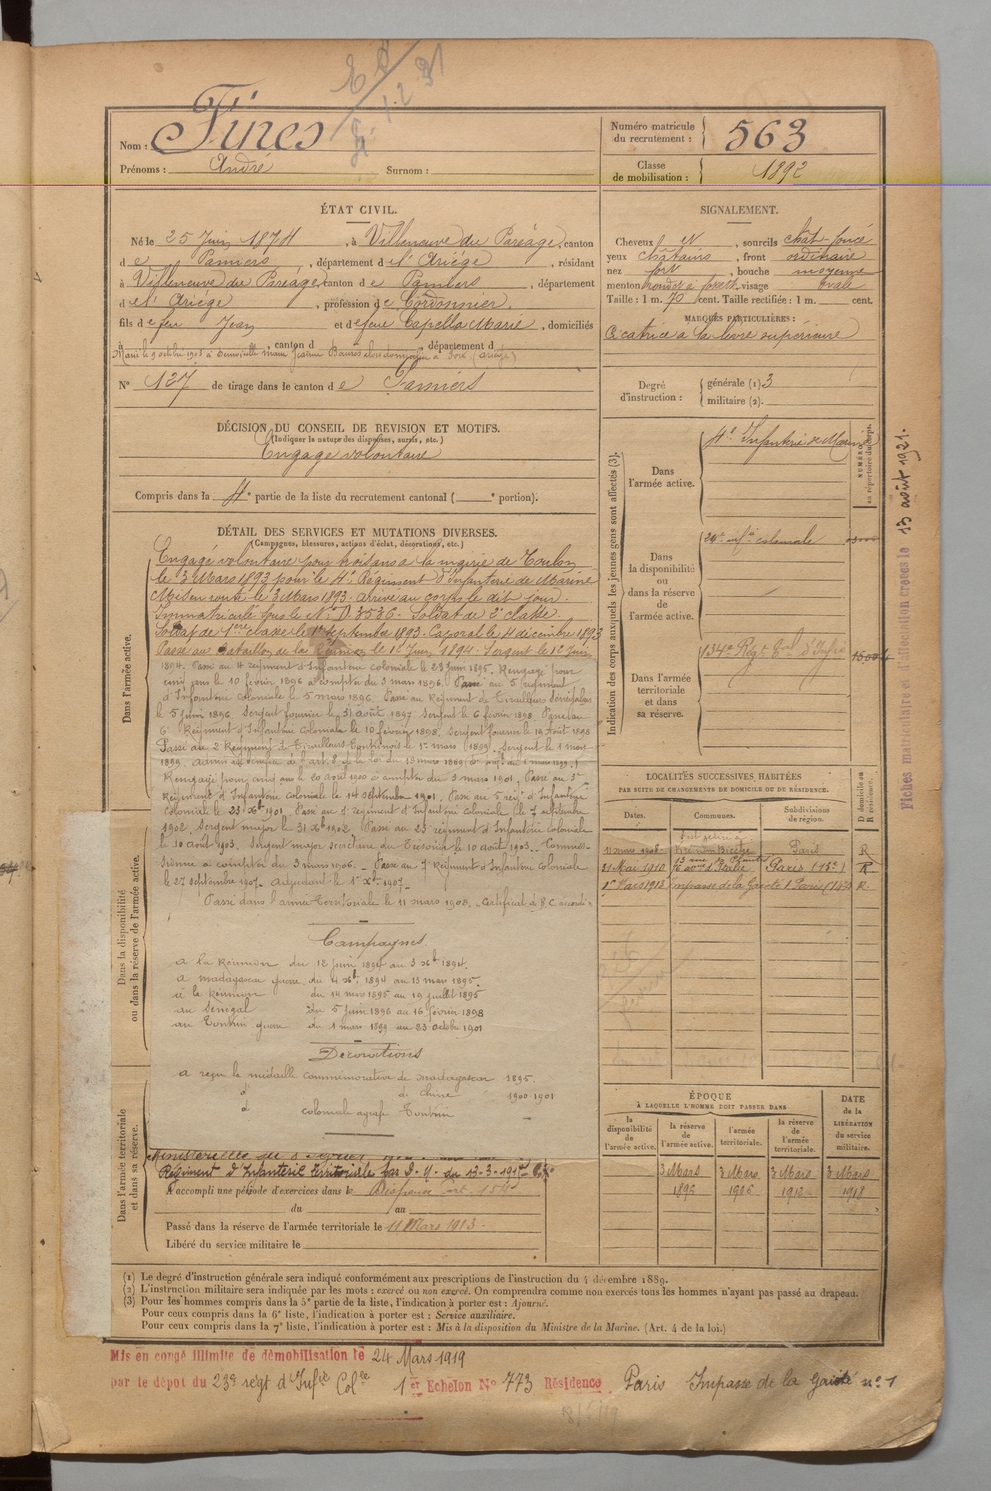 Nom : Fires
Prénoms : André Surnom :
Numéro matricule du recrutement : 563
Classe de mobilisation : 1892
ÉTAT CIVIL.
Né le 25 Juin 1874, à Villeneuve du Paréage, canton
de Pamiers, département de l'Ariège, résidant
à Villeneuve du Paréage, canton de Pamiers, département
de l'Ariège, profession de Cordonnier.
fils de feu Jean et de feue Capella Marie, domiciliés
à , canton d , département d
Marié le 9 octobre 1905 à
N° 127 de tirage dans le canton de Pamiers
DÉCISION DU CONSEIL DE REVISION ET MOTIFS.
(Indiquer la nature des dispenses, sursis, etc.)
Engagé volontaire
Compris dans la 4e partie de la liste du recrutement cantonal ( e portion).
SIGNALEMENT.
Cheveux et , sourcils chât-foncé
yeux châtains , front ordinaire
nez fort , bouche moyenne
menton rond à fossette, visage ovale
Taille : 1 m. 70 cent. Taille rectifiée : 1 m. cent.
MARQUES PARTICULIÈRES :
Cicatrice à la lèvre supérieure
Degré d'instruction : générale (1) 3
militaire (2).
DÉTAIL DES SERVICES ET MUTATIONS DIVERSES.
(Campagnes, blessures, actions d'éclat, décorations, etc.)
Dans l'armée active.
Engagé volontaire pour trois ans à la mairie de Toulon
le 3 Mars 1893 pour le 4e Régiment d'Infanterie de Marine
Mis en route le 3 Mars 1893. Arrivé au corps le dit jour.
Immatriculé sous le N° D 3536. Soldat de 2e classe
Soldat de 1ère classe le 1er Septembre 1893. Caporal le 4 décembre 1893
Passé au bataillon de la Réunion le 1er Juin 1894. Sergent le 1er Juin
1894. Passé au 4 régiment d'Infanterie coloniale le 29 Juin 1895. Rengagé pour
cinq ans le 10 février 1896 à compter du 3 mars 1896. Passé au 5 régiment
d'Infanterie Coloniale le 5 mars 1896. Passé au Régiment de Tirailleurs Sénégalais
le 5 juin 1896. Sergent fourrier le 31 août 1897. Sergent le 6 février 1898. Passé au
6e Régiment d'Infanterie Coloniale le 10 février 1898. Sergent fourrier le 19 Août 1898
Passé au 2 Régiment de Tirailleurs Tonkinois le 1er mars 1899. Sergent le 1 mars
1899.
Rengagé pour cinq ans le 20 août 1900 à compter du 3 mars 1901. Passé au 3e
Régiment d'Infanterie Coloniale le 14 septembre 1901. Passé au 5 régt d'Infanterie
Coloniale le 23 Xbre 1901. Passé au 1 régiment d'Infanterie Coloniale le 7 septembre
1902. Sergent major le 31 Xbre 1902. Passé au 23 régiment d'Infanterie Coloniale
le 10 août 1903. Sergent major secrétaire du Trésorier le 10 août 1903. Commis-
sionné à compter du 3 mars 1906. Passé au 7 Régiment d'Infanterie Coloniale
le 27 septembre 1907. Adjudant le 1er Xbre 1907.
Passé dans l'armée Territoriale le 11 mars 1908. Certificat de B.C. accordé
Campagnes
à la Réunion du 12 juin 1894 au 3 Xbre 1894.
à Madagascar guerre du 4 Xbre 1894 au 13 mars 1895.
à la Réunion du 14 mars 1895 au 19 juillet 1895
au Sénégal du 5 juin 1896 au 16 février 1898
au Tonkin guerre du 1 mars 1899 au 23 octobre 1901
Décorations
a reçu la médaille commémorative de Madagascar 1895.
d° de Chine 1900 1901
d° coloniale agrafe Tonkin
Dans la disponibilité ou dans la réserve de l'armée active.
Dans l'armée territoriale et dans sa réserve.
Régiment d'Infanterie Territoriale par D. M. du 13-3-191
A accompli une période d'exercices dans le
du au
Passé dans la réserve de l'armée territoriale le 11 Mars 1913.
Libéré du service militaire le
Indication des corps auxquels les jeunes gens sont affectés (3).
Dans l'armée active.
4e Infanterie de Marine
NUMÉRO au répertoire du corps.
Dans la disponibilité ou dans la réserve de l'armée active.
24e infie coloniale
Dans l'armée territoriale et dans sa réserve.
134e Régt Tal d'Infie
LOCALITÉS SUCCESSIVES HABITÉES
PAR SUITE DE CHANGEMENTS DE DOMICILE OU DE RÉSIDENCE.
Dates. Communes. Subdivisions de région. D domicile ou R résidence.
11 mars 1908 Kremlin Bicêtre Paris R
31 Mai 1910 76 avue d'Italie Paris (13e) R
1er Mars 1913 impasse de la Gaieté 1 Paris (14e) R.
ÉPOQUE
À LAQUELLE L'HOMME DOIT PASSER DANS
la disponibilité de l'armée active. la réserve de l'armée active. l'armée territoriale. la réserve de l'armée territoriale. DATE de la LIBÉRATION du service militaire.
3 Mars 3 Mars 3 Mars 3 Mars
1896 1906 1912 1918
(1) Le degré d'instruction générale sera indiqué conformément aux prescriptions de l'instruction du 4 décembre 1889.
(2) L'instruction militaire sera indiquée par les mots : exercé ou non exercé. On comprendra comme non exercés tous les hommes n'ayant pas passé au drapeau.
(3) Pour les hommes compris dans la 5e partie de la liste, l'indication à porter est : Ajourné.
Pour ceux compris dans la 6e liste, l'indication à porter est : Service auxiliaire.
Pour ceux compris dans la 7e liste, l'indication à porter est : Mis à la disposition du Ministre de la Marine. (Art. 4 de la loi.)
Mis en congé illimité de démobilisation le 24 Mars 1919
par le dépôt du 23e régt d'Infie Colle 1er Echelon N° 773 Résidence Paris Impasse de la Gaieté n° 1
Fiches matriculaire et d'affectation créées le 13 août 1921.